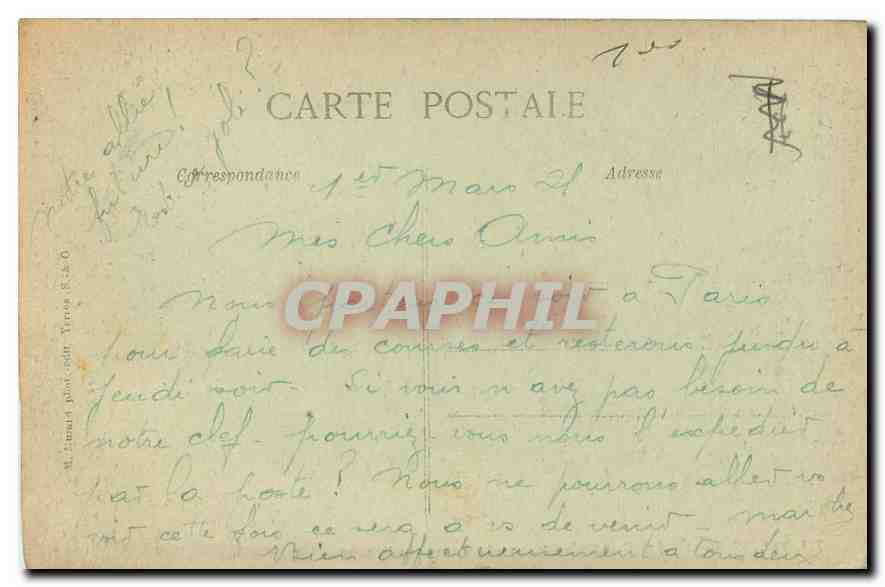 1er
CARTE POSTALE
notre allée
future !
joli ?
Correspondance
Adresse
1er Mars 21
Mes Chers Amis
Nous soir à Paris
CPAPHIL
pour faire des courses et resterons jusqu'à
jeudi soir. Si vous n'avez pas besoin de
notre clef. pourriez-vous nous l'expédier
par la poste ? Nous ne pourrons aller vo
voir cette fois ce sera à vs de venir.
Bien affectueusement à tous deux
phot.-édit., Yerres (S.-&-O